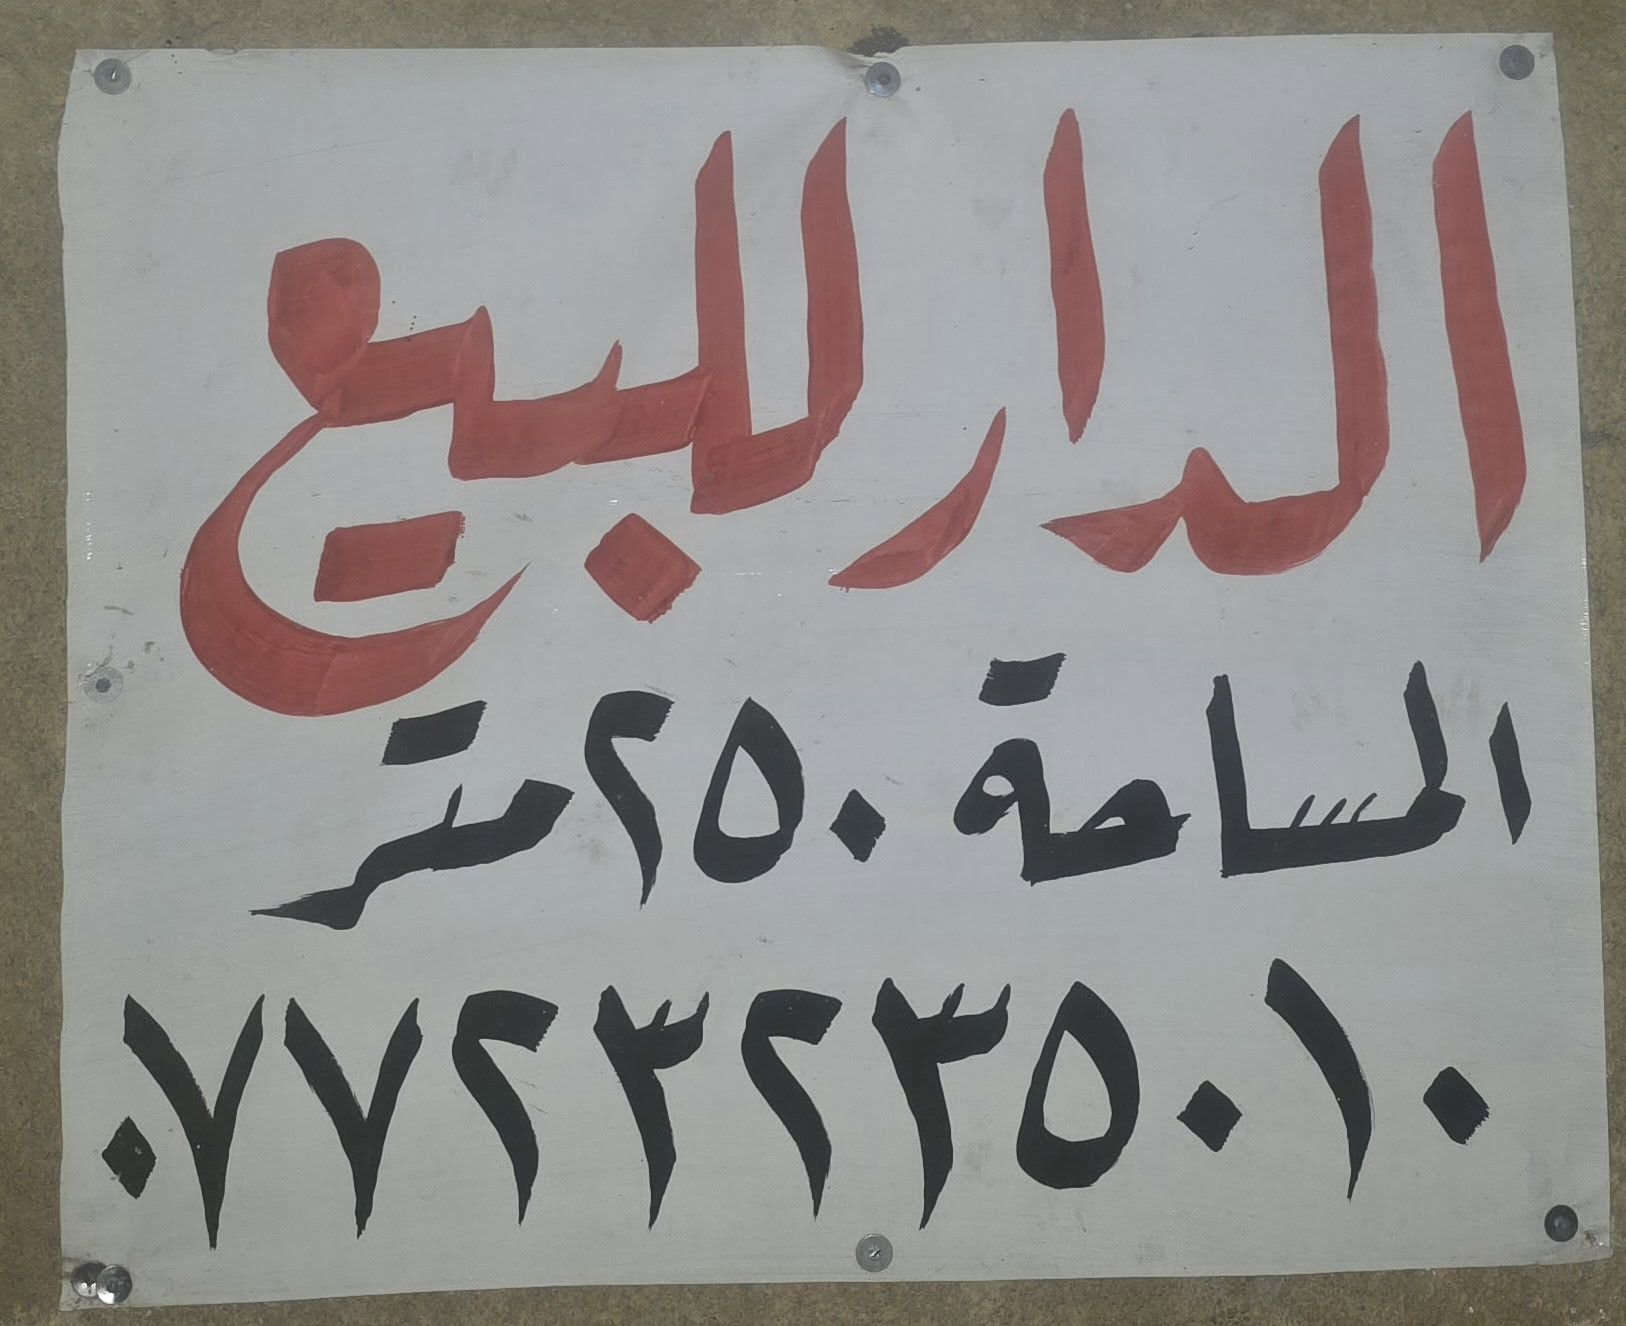 الدار للبيع
المساحة ٢٥٠ متر
٠٧٧٢٣٢٣٥٠١٠